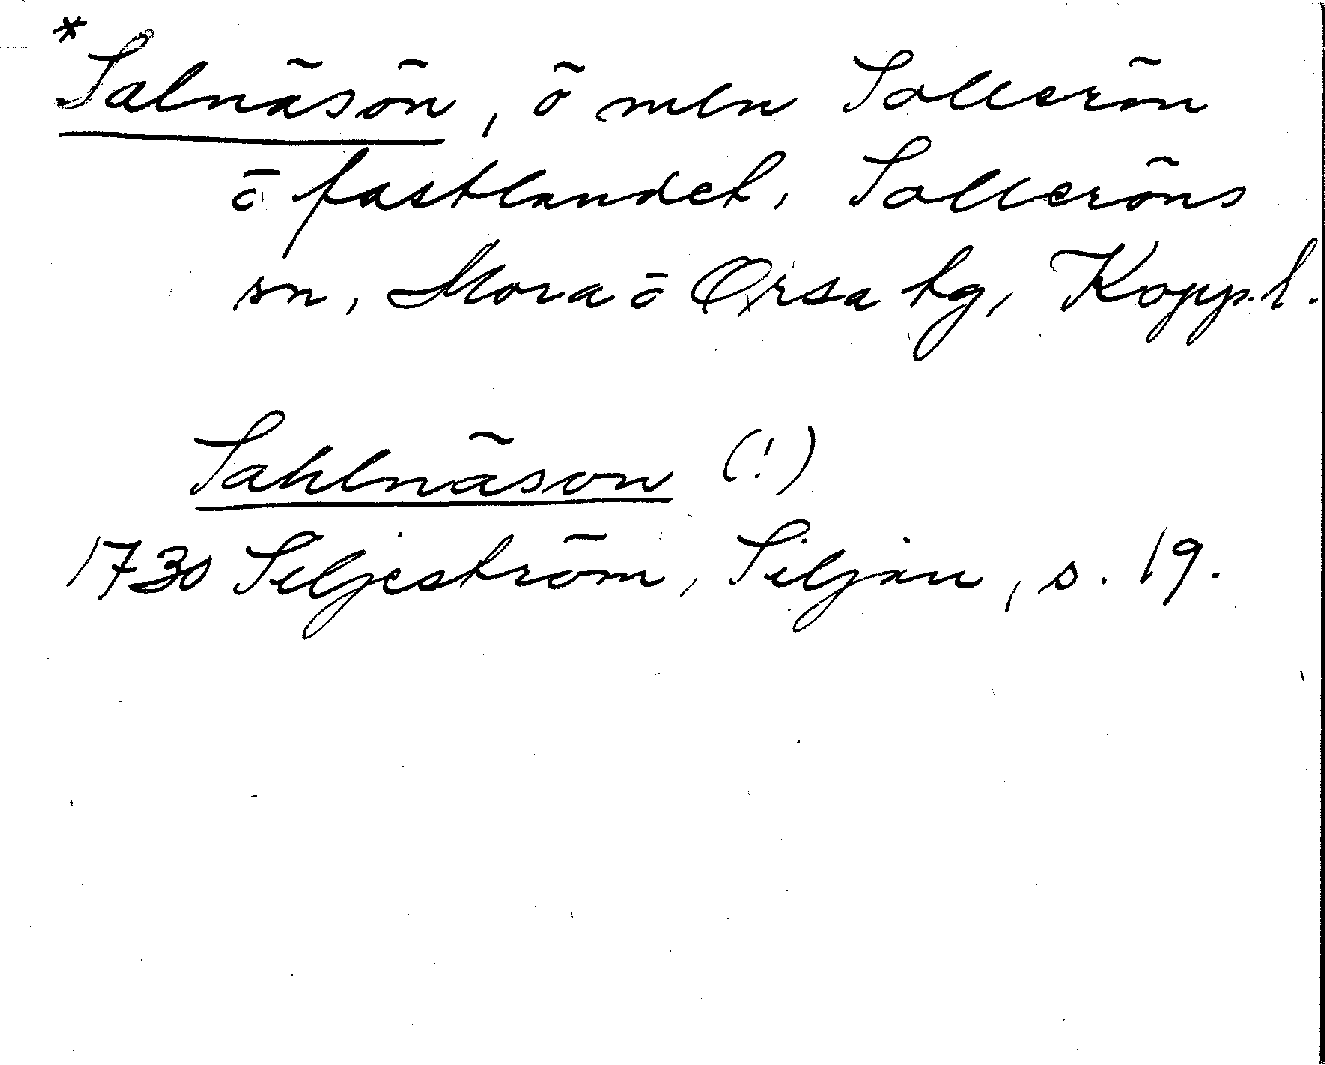 *
Salnäsön, ö mln Sollerön
o fastlandet, Solleröns
sn, Mora o Orsa tg, Kopp. l.
Sahlnäson (!)
1730 Siljeström, Siljan, s. 19.